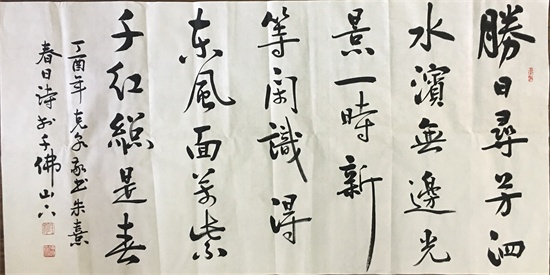 勝日尋芳泗
水濱無邊光
景一時新
等閑識得
东風面萬紫
千红總是春
丁酉年克家书朱熹
春日诗於千佛山下